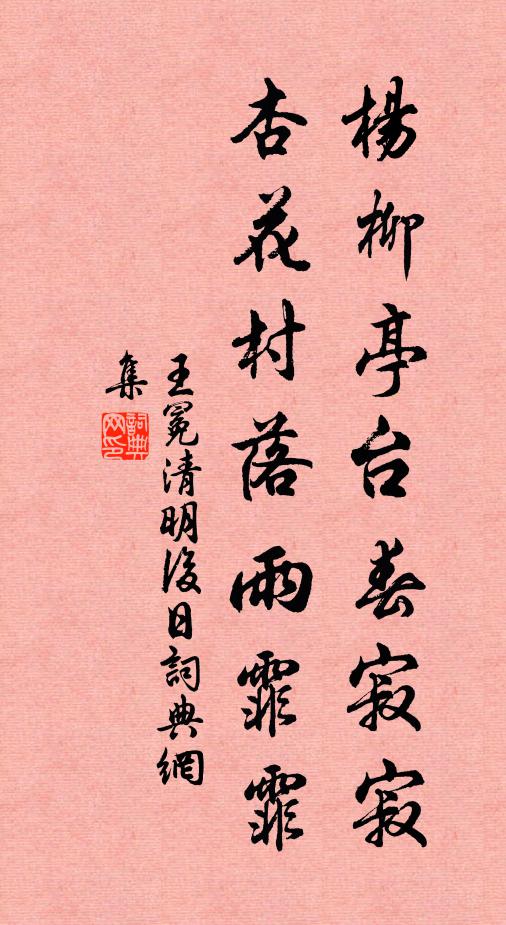 楊柳亭台春寂寂
杏花村落雨霏霏
王冕清明後日詞典網
集
詞典網印